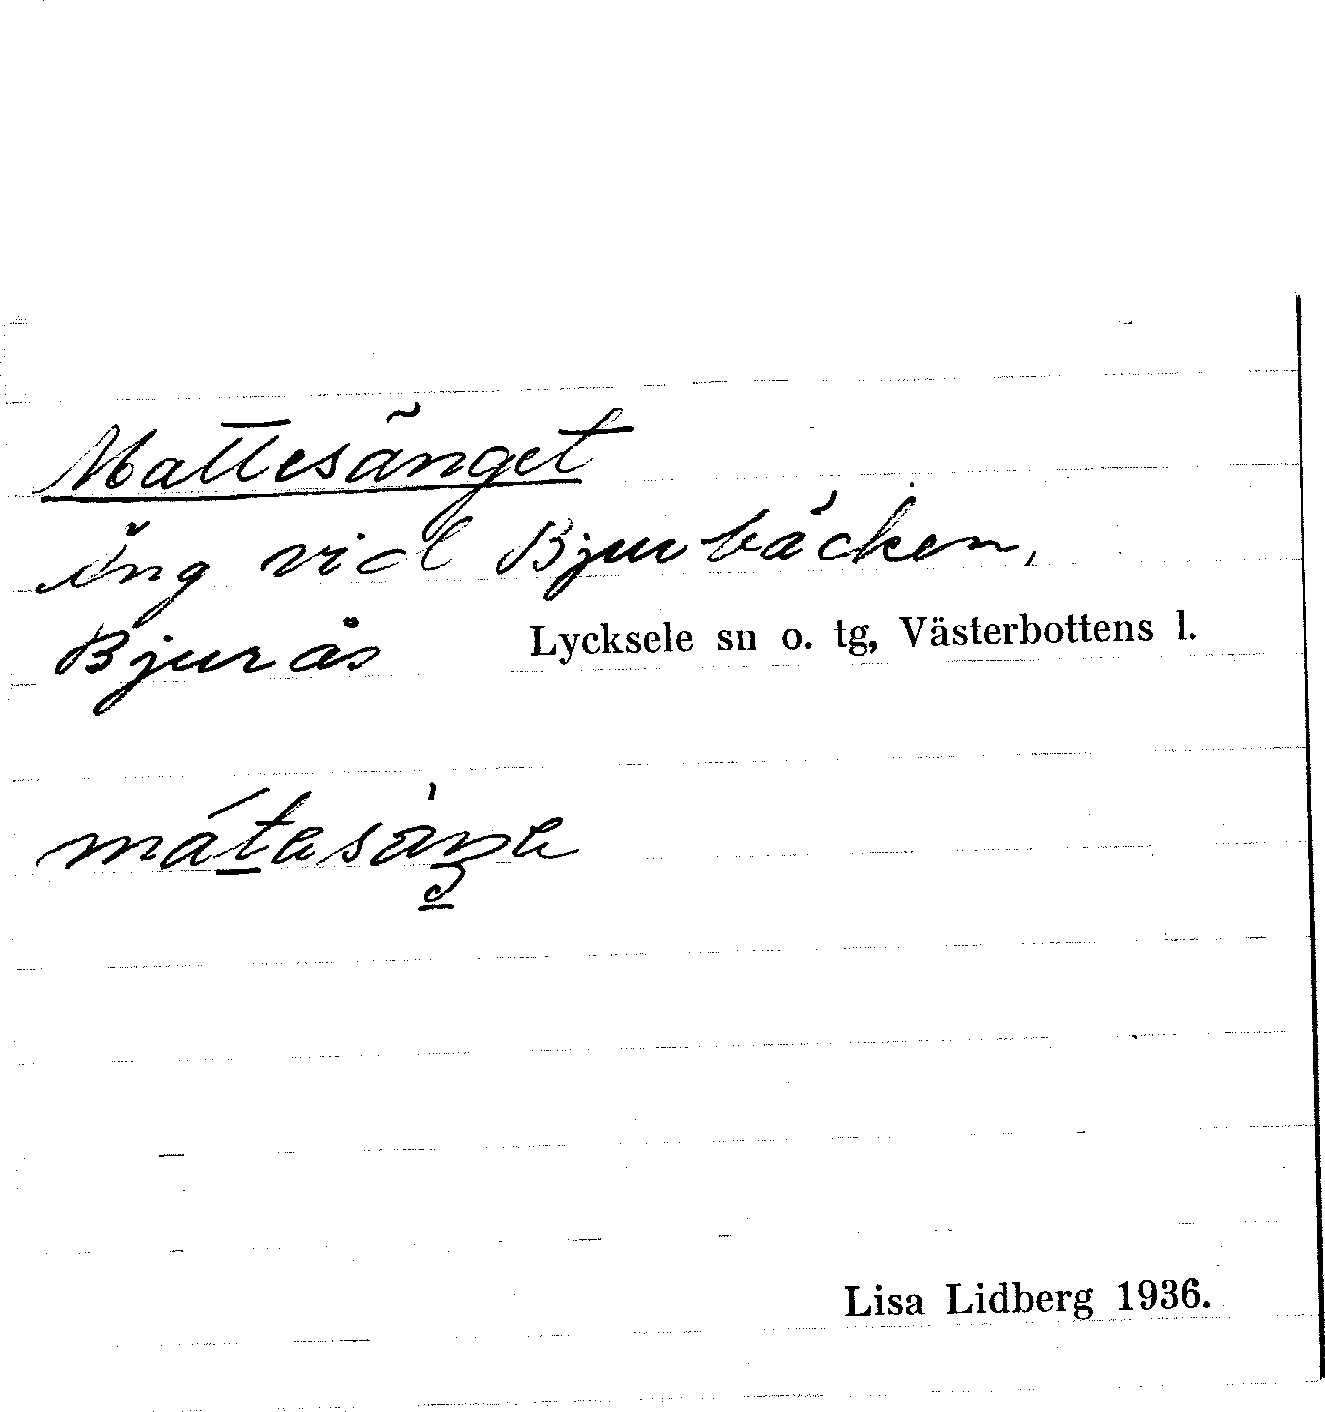 Mattesänget
Äng vid Bjurbäcken,
Bjurås Lycksele sn o. tg, Västerbottens l.
Lisa Lidberg 1936.